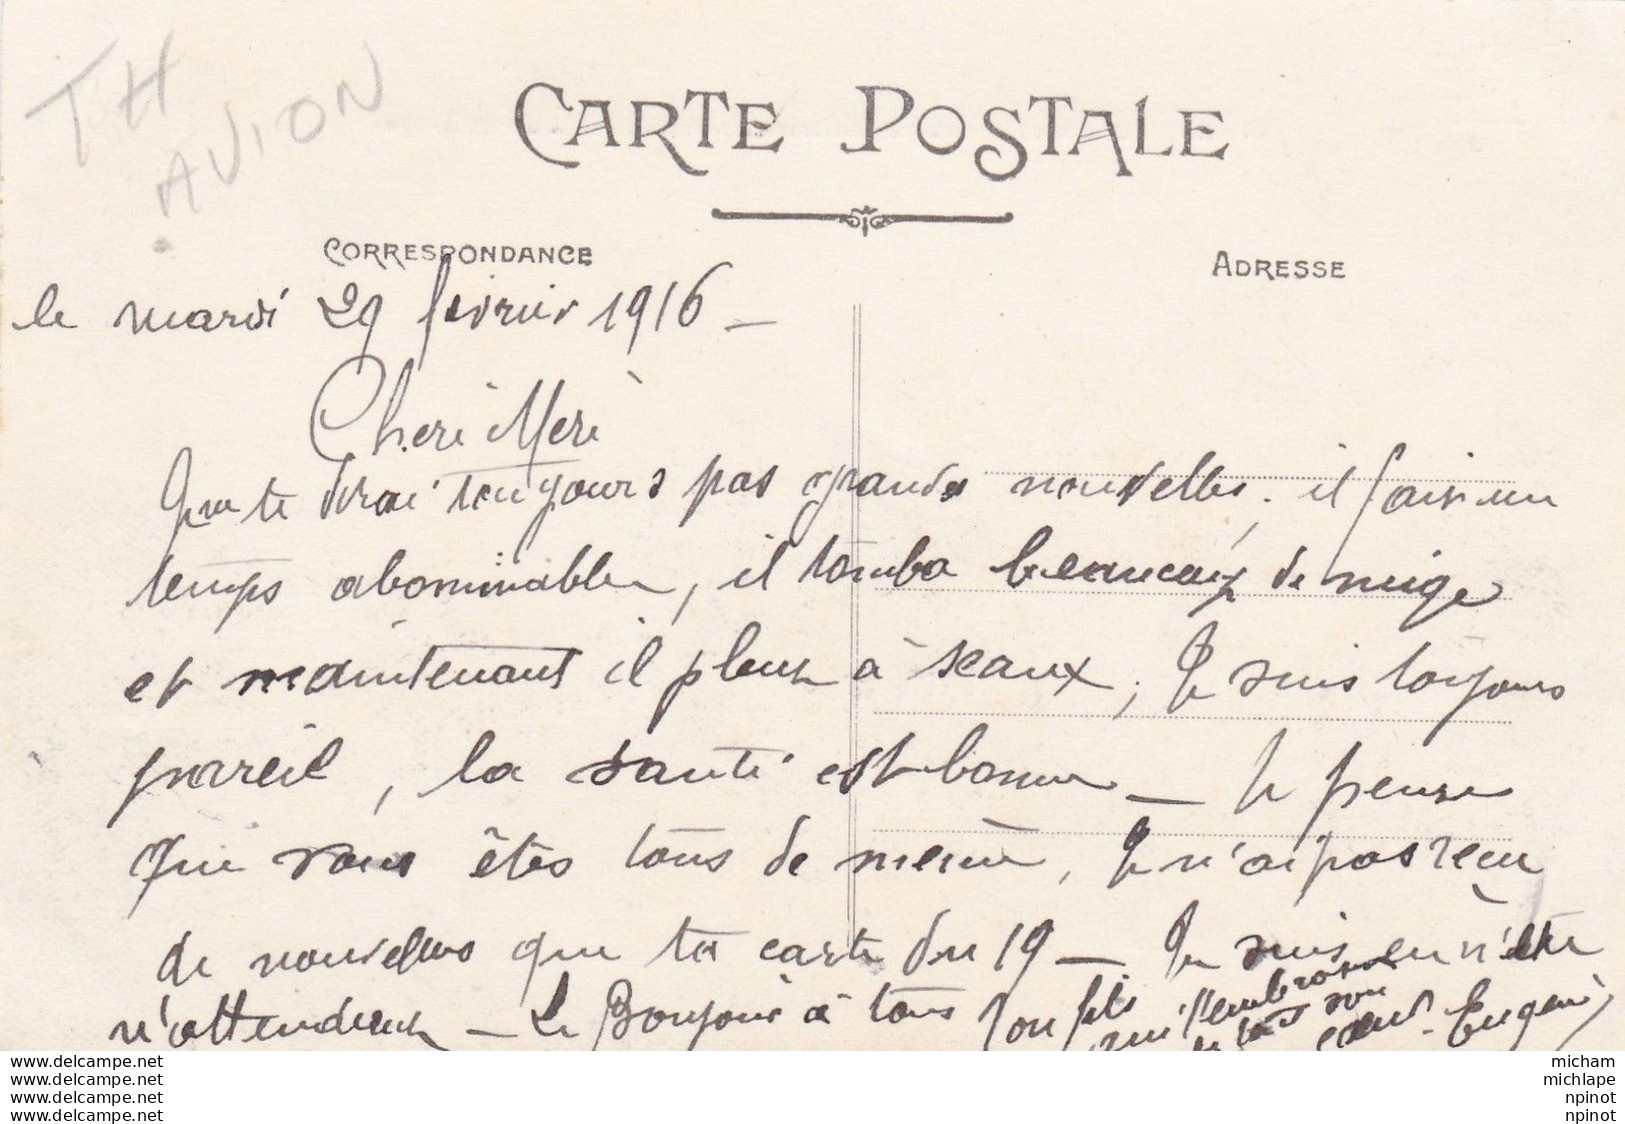 TH
AVION
CARTE POSTALE
CORRESPONDANCE
ADRESSE
le mardi 29 février 1916 –
Cheri Mère
Que te dirai toujours pas grande nouvelles, il fait un
temps abominable, il tomba beaucoup de neige
et maintenant il pleut à seaux, Je suis toujours
pareil, la santé est bonne – Je pense
que vous êtes tous de même, Je n'ai pas reçu
de nouvelles que ta carte du 19 – Je suis
n'attendent – Le Bonjour à tous Ton fils
qui t'embrasse
de tout son
cœur Eugène
www.delcampe.net
www.delcampe.net
www.delcampe.net
www.delcampe.net
micham
michlape
npinot
npinot